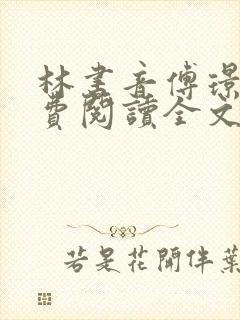 林書音傅璟
費閱讀全文
若是花開伴葉